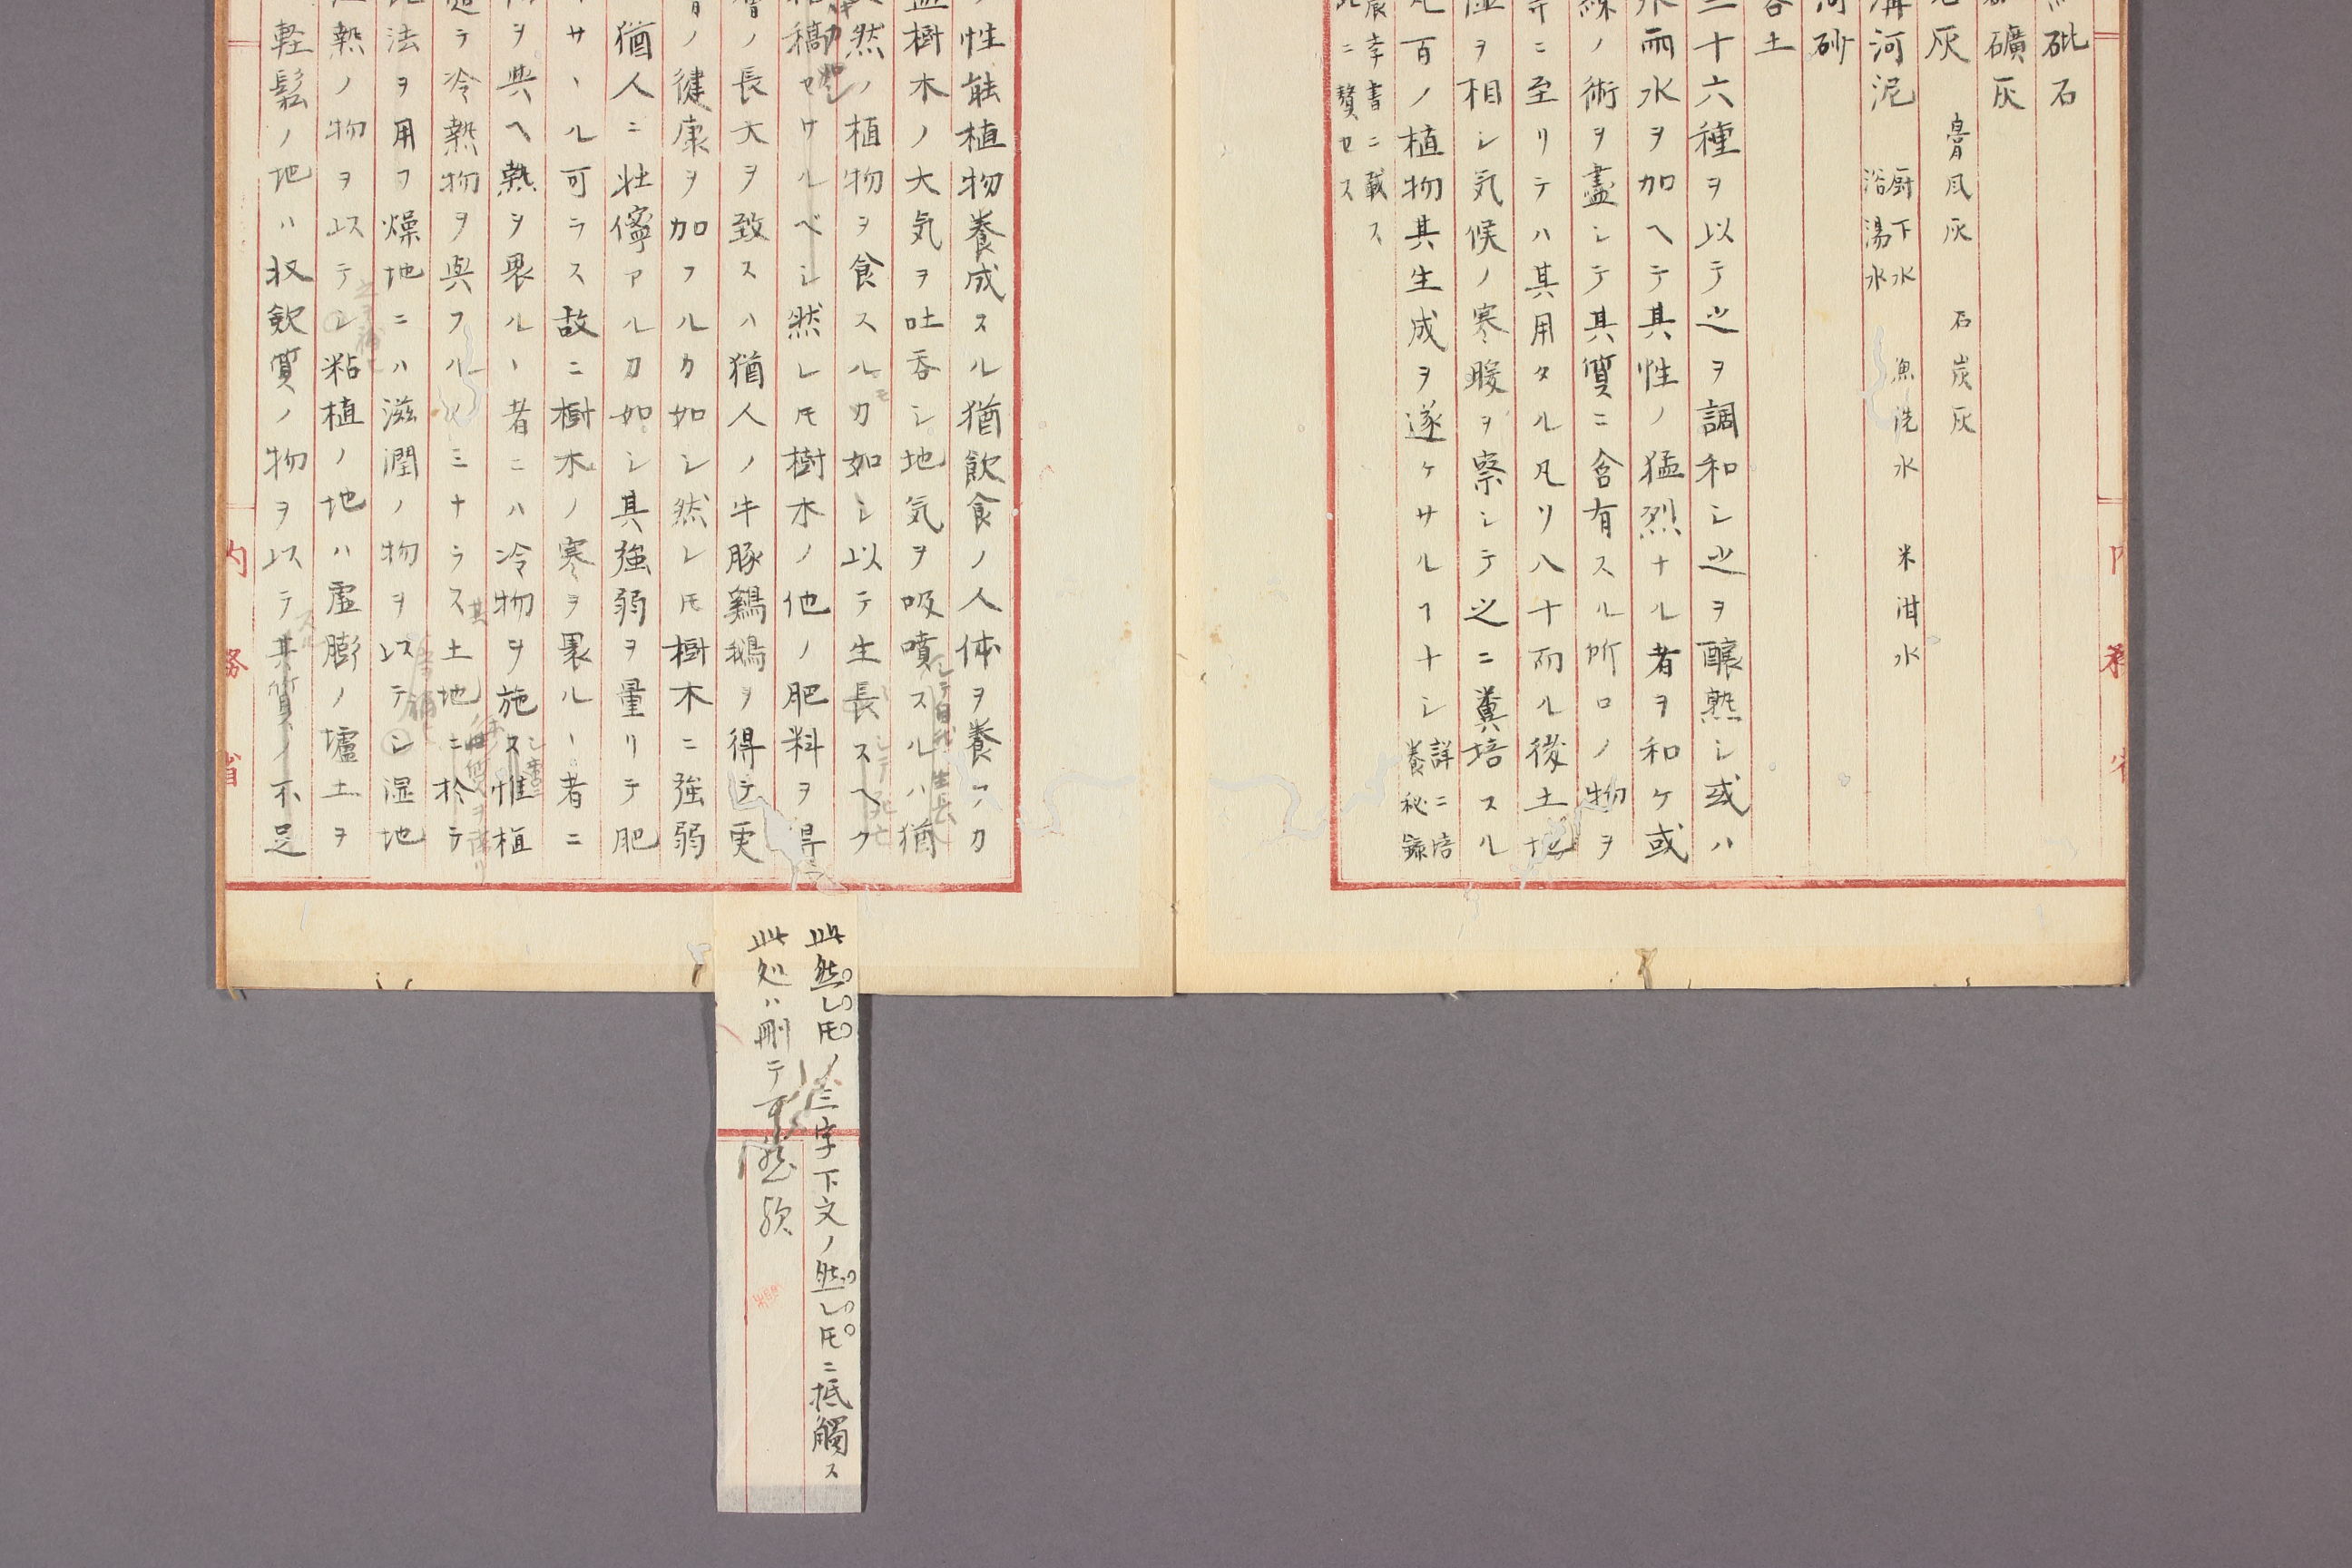 砒石
礦灰
灰 石炭灰
溝河泥 厨下水 浴湯水 魚洗水 米泔水
河砂
土
三十六種ヲ以テ之ヲ調和シ之ヲ釀熟シ或ハ
雨水ヲ加ヘテ其性ノ猛烈ナル者ヲ和ケ或
ノ術ヲ盡シテ其質ニ含有スル所ロノ物ヲ
ニ至リテハ其用タル凡ソ八十而ル後土地
ヲ相シ気候ノ寒暖ヲ察シテ之ニ糞培スル
百ノ植物其生成ヲ遂ケサルヿナシ 詳ニ培養秘録
農李書ニ載ス
此ニ贅セス
内務省
性能植物養成スル猶飲食ノ人体ヲ養フカ
樹木ノ大気ヲ吐呑シ地気ヲ吸噴スルハ猶
然ノ植物ヲ食スルカ如シ以テ生長スヘク
稿セサルベシ然レ𪜈樹木ノ他ノ肥料ヲ得テ
ノ長大ヲ致スハ猶人ノ牛豚鷄鵝ヲ得テ更
ノ健康ヲ加フルカ如シ然レ𪜈樹木ニ強弱
猶人ニ壮儜アルカ如シ其強弱ヲ量リテ肥
サヽル可ラス故ニ樹木ノ寒ヲ畏ルヽ者ニ
ヲ與ヘ熱ヲ畏ルヽ者ニハ冷物ヲ施ス惟植
テ冷熱物ヲ與フルノミナラス土地ニ於テ
法ヲ用フ燥地ニハ滋潤ノ物ヲ以テシ湿地
熱ノ物ヲ以テシ粘植ノ地ハ虚膨ノ壚土ヲ
軽鬆ノ地ハ収斂質ノ物ヲ以テ其質ノ不足
内務省
此然レ𪜈ノ三字下文ノ然レ𪜈ニ抵觸ス
此処ハ刪テ可然歟